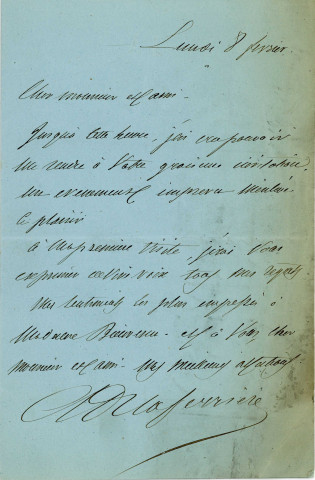 Lundi 8 février.
Cher monsieur et ami -
Jusqu'à cette heure, j'ai cru pouvoir
me rendre à votre gracieuse invitation.
un evennement imprevu m'enlève
ce plaisir
à ma première visite, j'irai vous
exprimer de vive voix tous mes regrets
Mes sentiments les plus empressés à
Madame - et à vous cher
monsieur et ami - mes meilleurs
A D Laferrière